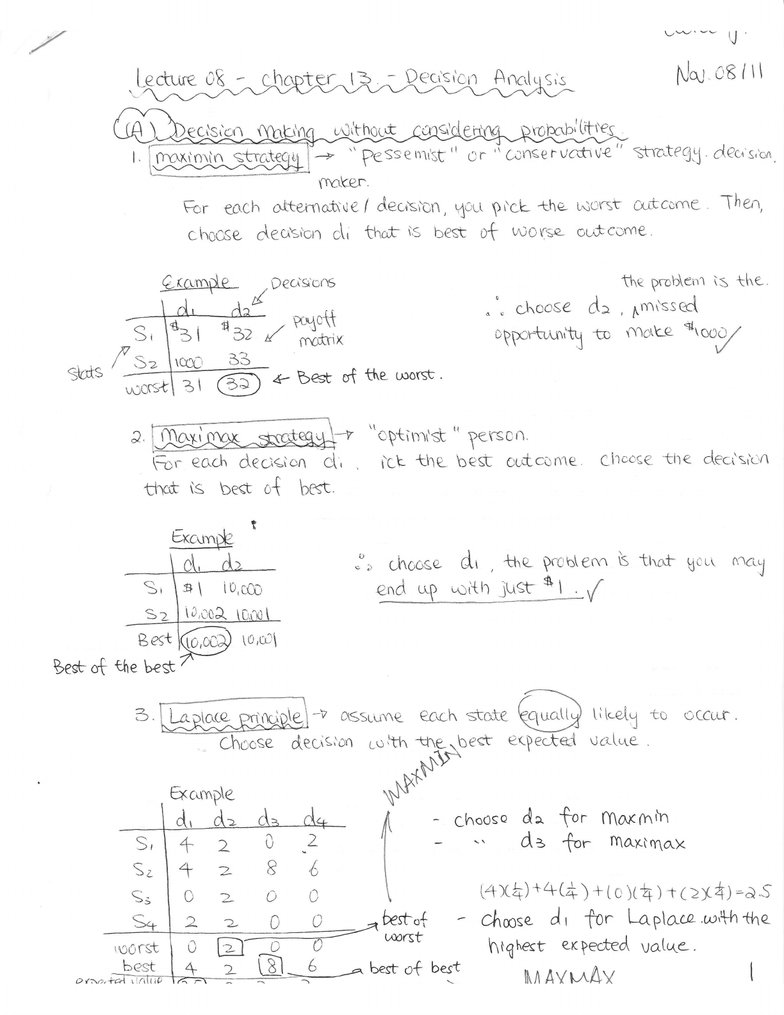 Nov. 08/11
Lecture 08 - chapter 13. - Decision Analysis
(A) Decision Making without considering probabilities.
1. maximin strategy → "Pessemist" or "conservative" strategy. decision
maker.
For each alternative/decision, you pick the worst outcome. Then,
choose decision di that is best of worse outcome.
Example
Decisions
the problem is the.
d1 d2
∴ choose d2, ^missed
S1 $31 $32
payoff
matrix
opportunity to make $1000
S2 1000 33
Stats
worst 31 32 ← Best of the worst.
2. Maximax strategy → "optimist" person.
For each decision di, ick the best outcome. choose the decision
that is best of best.
Example
d1 d2
∴ choose d1, the problem is that you may
S1 $1 10,000
end up with just $1.
S2 10,002 10,001
Best 10,002 10,001
Best of the best
3. Laplace principle → assume each state equally likely to occur.
Choose decision with the best expected value.
MAXMIN
Example
d1 d2 d3 d4
- choose d2 for maxmin
S1 4 2 0 2
- " d3 for maximax
S2 4 2 8 6
S3 0 2 0 0
(4)(1/4)+4(1/4)+(0)(1/4)+(2)(1/4)=2.5
S4 2 2 0 0
best of
worst
- choose d1 for Laplace with the
worst 0 2 0 0
highest expected value.
best 4 2 8 6
best of best
expected value
MAXMAX
1